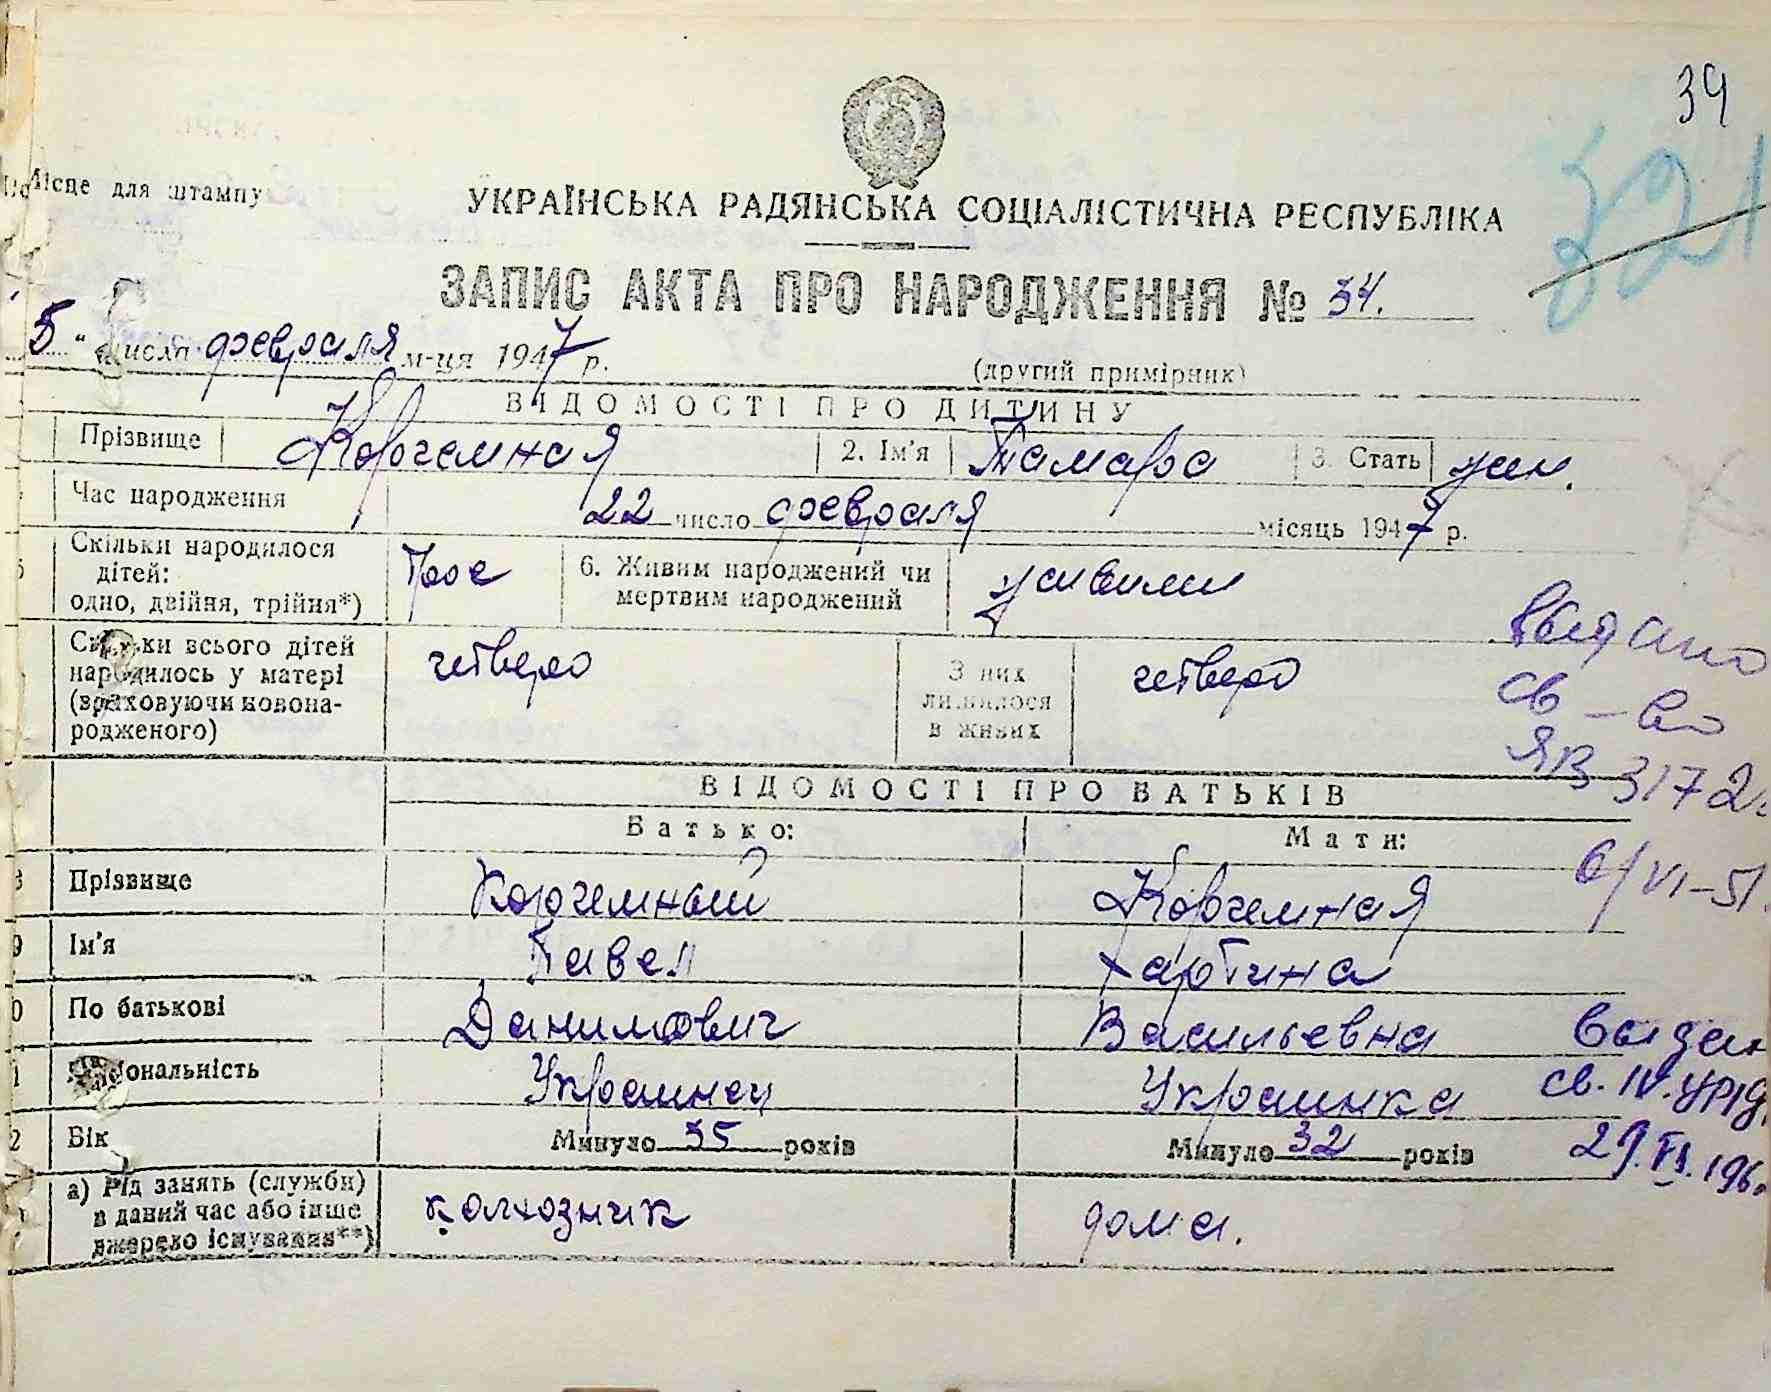 34
321
Місце для штампу
УКРАЇНСЬКА РАДЯНСЬКА СОЦІАЛІСТИЧНА РЕСПУБЛІКА
ЗАПИС АКТА ПРО НАРОДЖЕННЯ № 34.
5 " числа февраля м-ця 1947 р.
(другий примірник)
ВІДОМОСТІ ПРО ДИТИНУ
Прізвище Корчемная 2. Ім'я Тамара 3. Стать жен.
Час народження 22 число февраля місяць 1947 р.
Скільки народилося дітей: одно, двійня, трійня*) трое 6. Живим народжений чи мертвим народжений живими
Скільки всього дітей народилось у матері (враховуючи новонародженого) четверо З них лишилося в живих четверо
Выдано
св-во
ЯВ 3172
6/VI-51
ВІДОМОСТІ ПРО БАТЬКІВ
Батько: Мати:
Прізвище Корчемный Корчемная
9 Ім'я Павел Хартина
0 По батькові Данилович Васильевна
1 Національність Украинец Украинка
2 Вік Минуло 35 років Минуло 32 років
а) Рід занять (служби) в даний час або інше джерело існування**) колхозник дома.
Выдан
св. IV.
29.VI.196